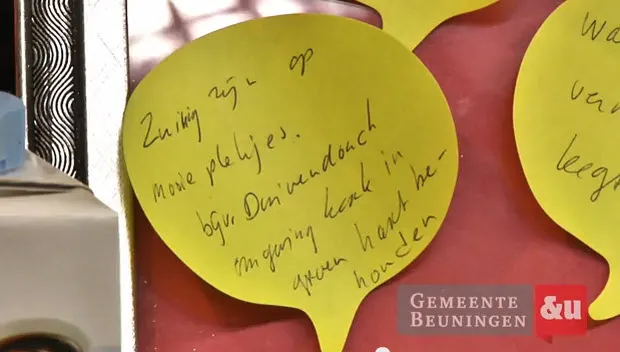 Zuinig zijn op
mooie plekjes.
bijv. Druivendruch
omgeving kerk in
groen hart be-
houden
Wa
ver
leeg
GEMEENTE
BEUNINGEN
&u